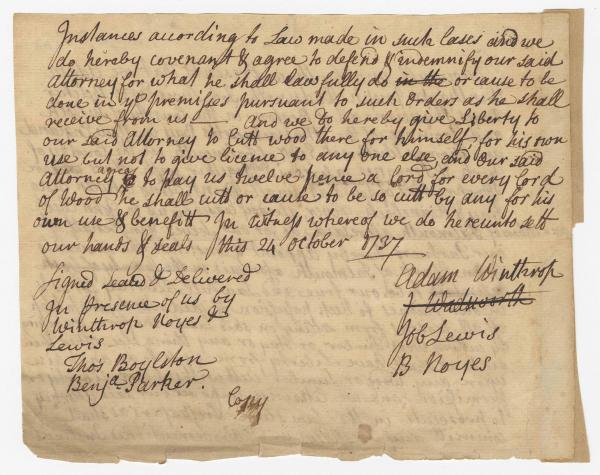 Instances according to Law made in such Cases and we
do hereby covenant & agree to defend & indemnify our said
Attorney for what he shall lawfully do in the or cause to be
done in ye premisses pursuant to such orders as he shall
receive from us — And we do hereby give Liberty to
our said Attorney to Cutt wood there for himself, for his own
use but not to give licence to any one else, and Our said
Attorney agrees to pay us twelve pence a Cord for every Cord
of Wood he shall cutt or cause to be so cutt by any for his
own use & benefitt In Witness whereof we do hereunto sett
our hands & seals this 24 October 1737
Signed Sealed & Delivered
In presence of us by
Winthrop Noyes &
Lewis
Thos Boylston
Benja Parker.
Adam Winthrop
J Wadsworth
Job Lewis
B Noyes
Copy